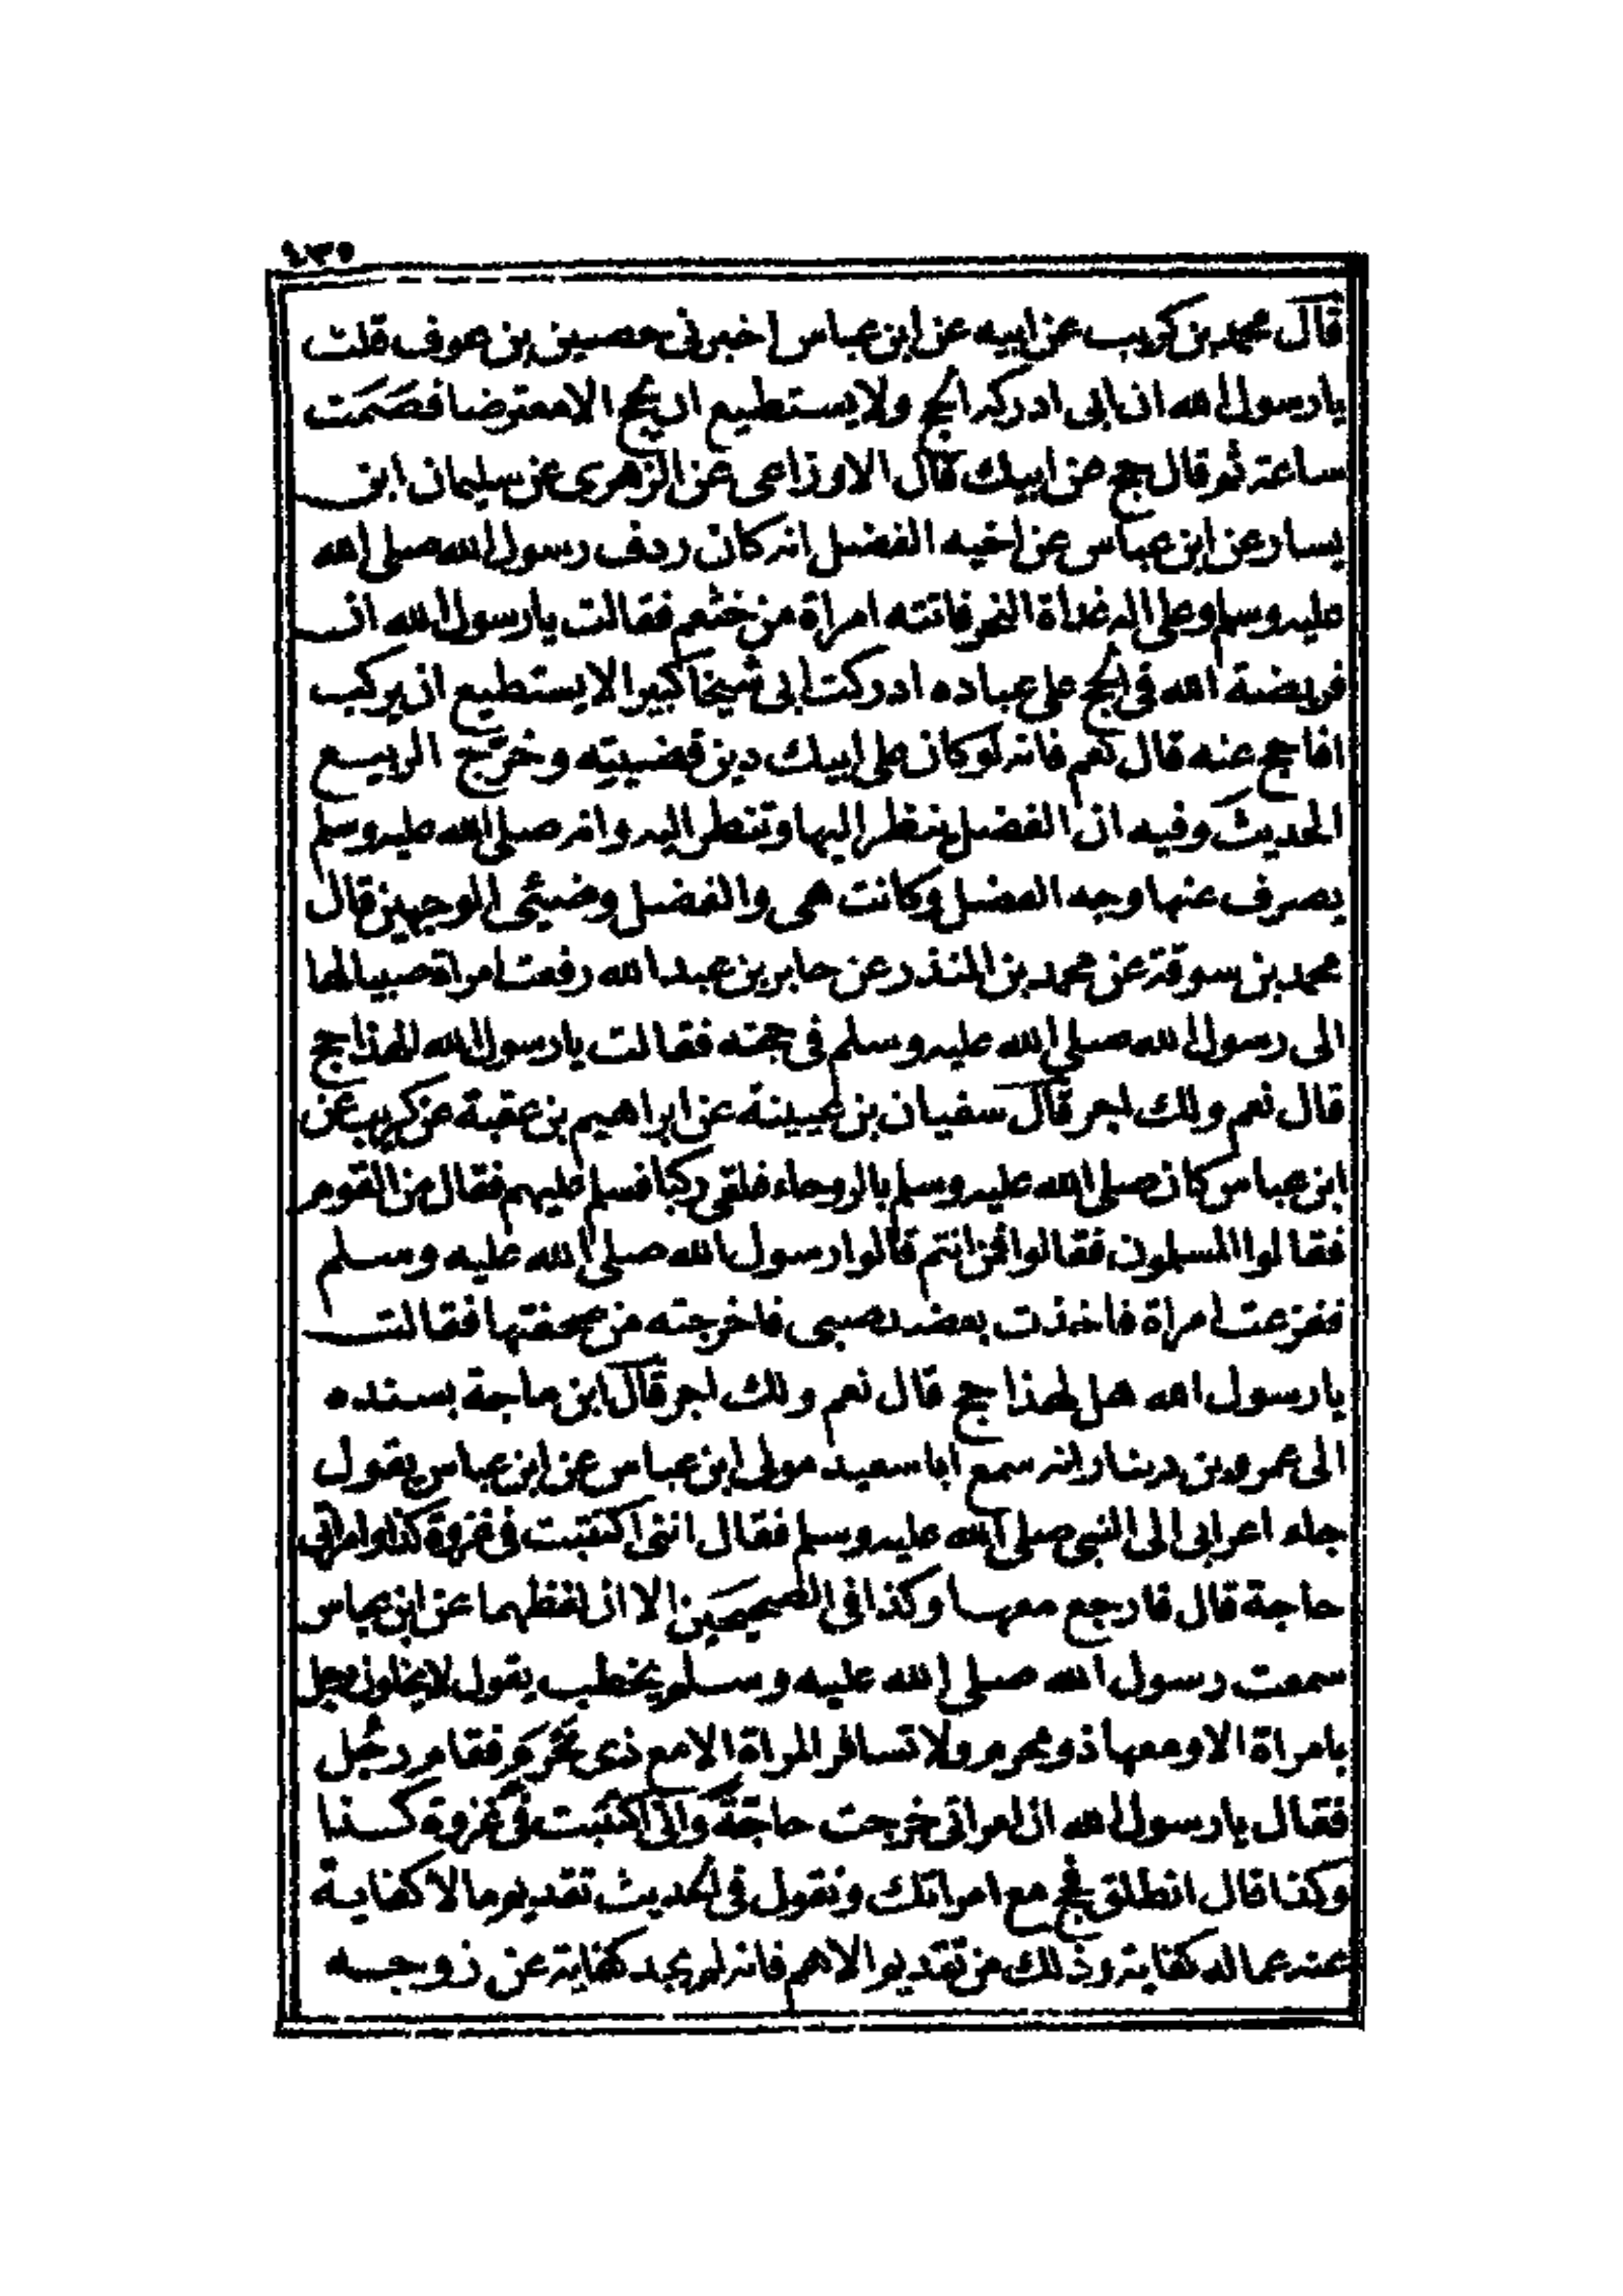 ٥٣٩
قال محمد بن كريب عن ابيه عن ابن عباس اخبرنى حصين بن عوف قلت
يا رسول الله ان ابى ادركه الحج ولا يستطيع ان يحج الا معترضا فصَمَت
ساعة ثم قال حج عن ابيك قال الاوزاعى عن الزهرى عن سليمان ابن
يسار عن ابن عباس عن اخيه الفضل انه كان ردف رسول الله صلى الله
عليه وسلم وعلى اله غداة النحر فاتته امراة من خثعم فقالت يا رسول الله ان
فريضة الله فى الحج على عباده ادركت ابى شيخا كبيرا لا يستطيع ان يركب
افاحج عنه قال نعم فانه لو كان على ابيك دين قضيتيه وخرّج الربيع
الحديث وفيه ان الفضل ينظر اليها وتنظر اليه وانه صلى الله عليه وسلم
يصرف عنها وجه الفضل وكانت هى والفضل وضيئى الوجهين قال
محمد بن سوقة عن محمد بن المنذر عن جابر بن عبد الله رفعت امراة صبيا لها
الى رسول الله صلى الله عليه وسلم فى حجته فقالت يا رسول الله الهذا حج
قال نعم ولك اجر قال سفيان بن عيينة عن ابراهيم بن عقبة عن كريب عن
ابن عباس كان صلى الله عليه وسلم بالروحاء فلقى ركبا فسلم عليهم فقال من القوم
فقالوا المسلمون فقالوا فمن انتم قالوا رسول الله صلى الله عليه وسلم
ففزعت امراة فاخذت بعضد صبى فاخرجته من محفتها فقالت
يا رسول الله هل لهذا حج قال نعم ولك اجر قال ابن ماجة بسنده
الى عمرو بن دينار انه سمع ابا سعيد مولى ابن عباس عن ابن عباس يقول
جاء اعرابى الى النبى صلى الله عليه وسلم فقال اننى اكتتبت فى غزوة كذا وامراتى
حاجة قال فارجع معها وكذا فى الصحيحين الا ان لفظهما عن ابن عباس
سمعت رسول الله صلى الله عليه وسلم يخطب يقول لا يخلون رجل
بامراة الا ومعها ذو محرم ولا تسافر المراة الا مع ذى مَحْرَم فقام رجُل
فقال يا رسول الله ان امراتى خرجت حاجّة وانى اكتُتبت فى غزوة كذا
وكذا قال انطلق فحج مع امراتك ونقول فى الحديث تقديم ما لا كفاية
عنه عما له كفاية وذلك من تقديم الاهم فانه لم يجد كفاية عن زوجه